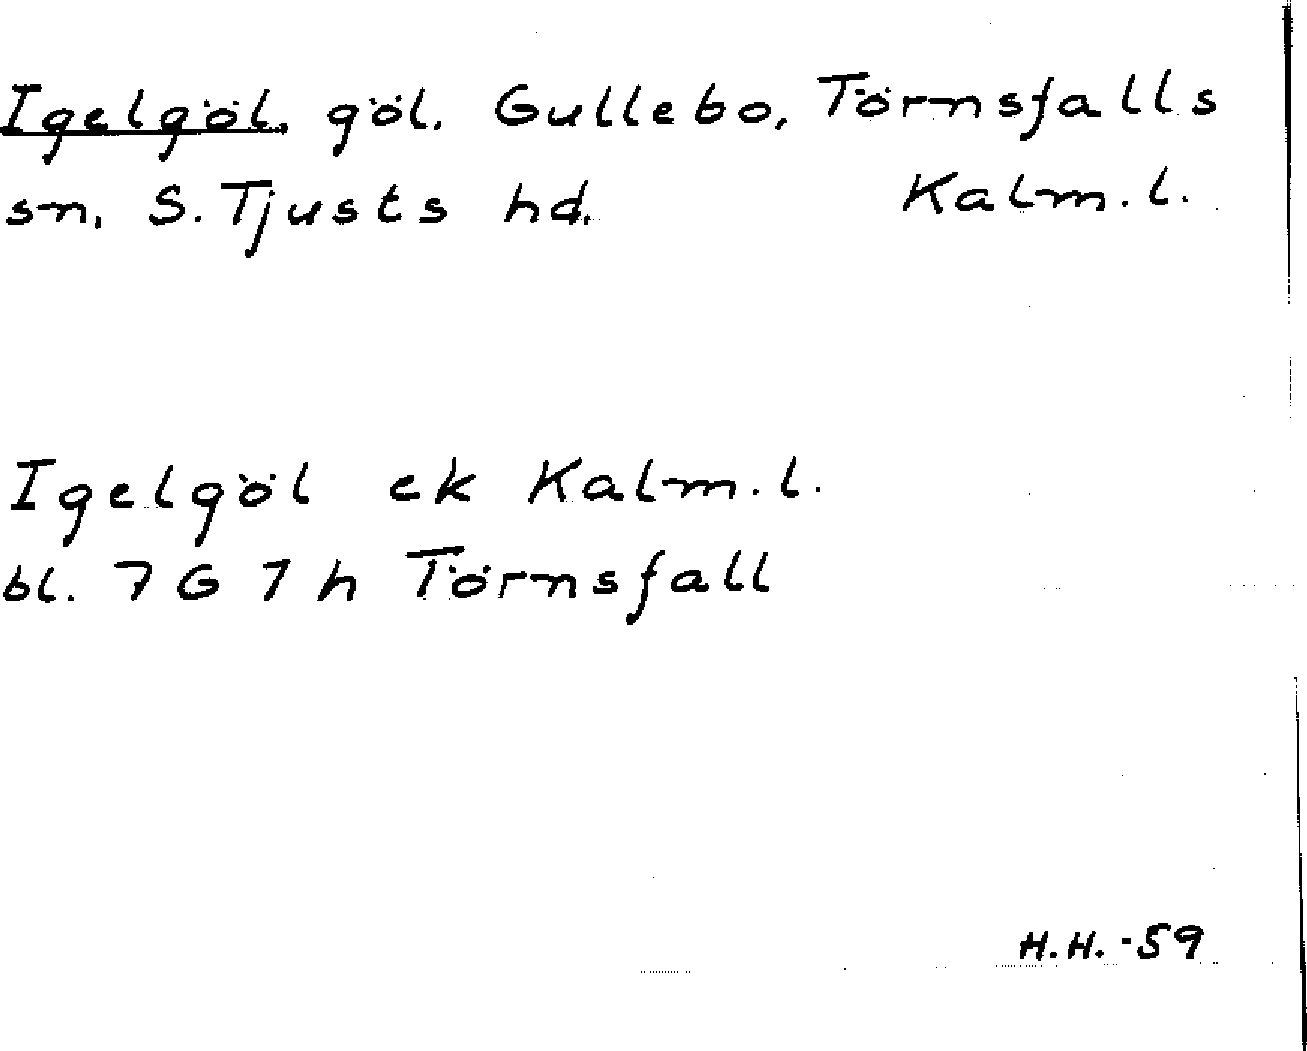 Igelgöl, göl. Gullebo, Törnsfalls
sn. S. Tjusts hd. Kalm. l.
Igelgöl ek Kalm. l.
bl. 7 G 7 h Törnsfall
H.H. -59